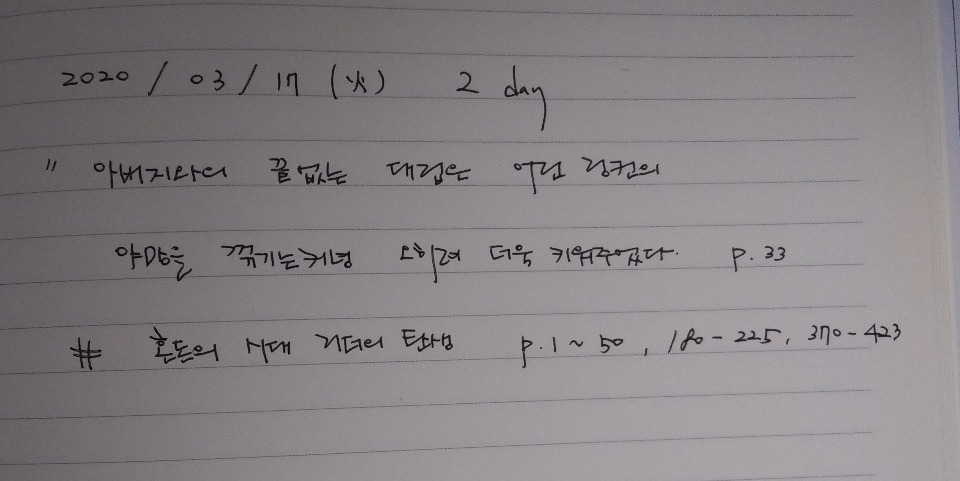 2020 / 03 / 17 (火) 2 day
" 아버지와의 끝없는 대립은 어린 링컨의
야망을 꺾기는커녕 오히려 더욱 키워주었다. p. 33
# 혼돈의 시대 리더의 탄생 p. 1 ~ 50, 180 - 225, 370 - 423